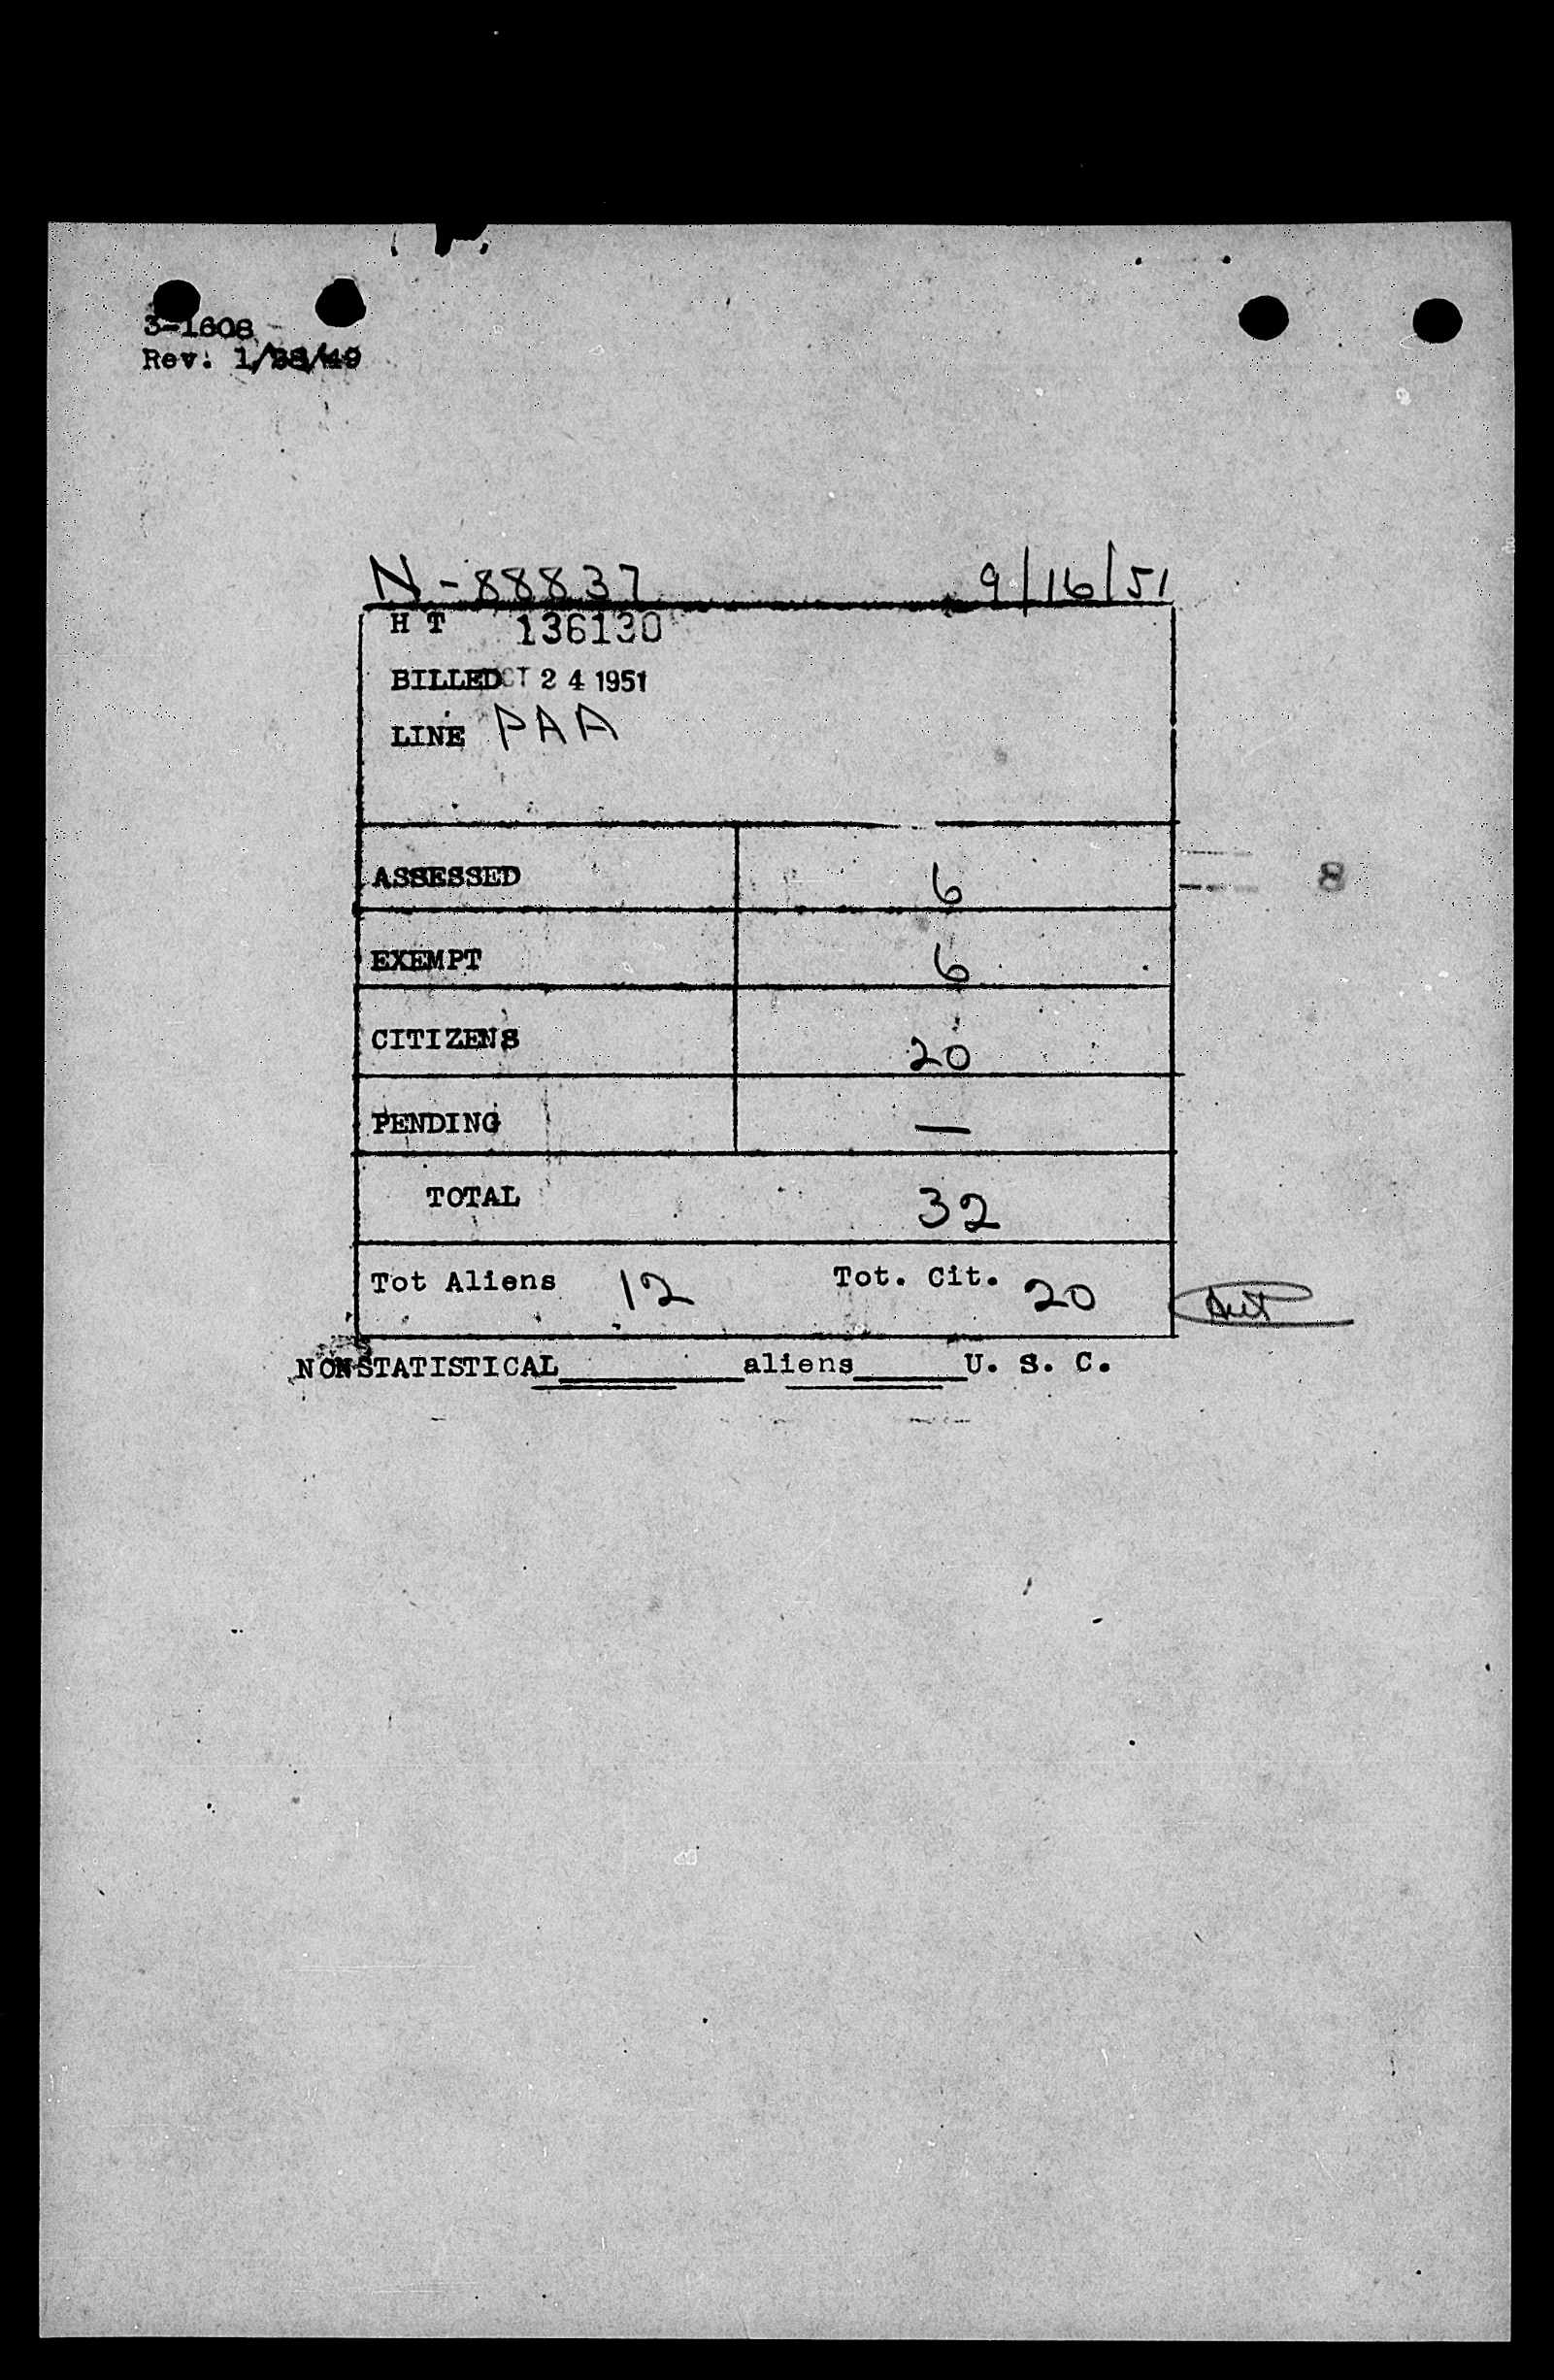 3-1608
Rev. 1/28/49
N-88837 9/16/51
H T 136130
BILLED OCT 24 1951
LINE PAA
ASSESSED 6
8
EXEMPT 6
CITIZENS 20
PENDING —
TOTAL 32
Tot Aliens 12 Tot. Cit. 20
NONSTATISTICAL________aliens_____U. S. C.